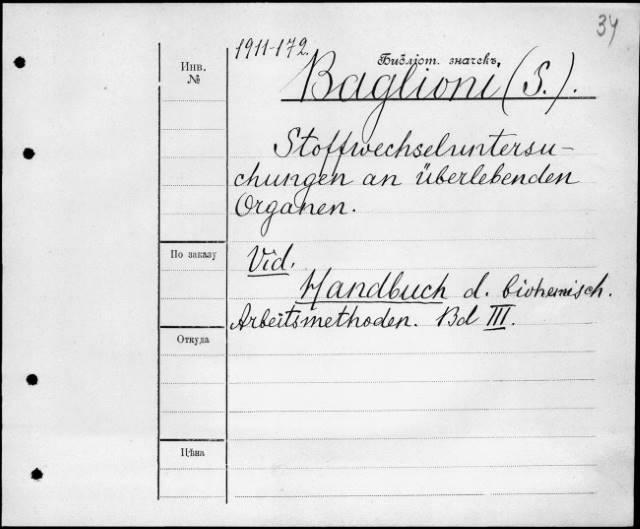 34
1911-172.
Библіот. значекъ,
Инв.
№
Baglioni (S.).
Stoffwechseluntersu-
chungen an überlebenden
Organen.
По заказу
Vid.
Handbuch d. biohemisch.
Arbeitsmethoden. Bd III.
Откуда
Цѣна